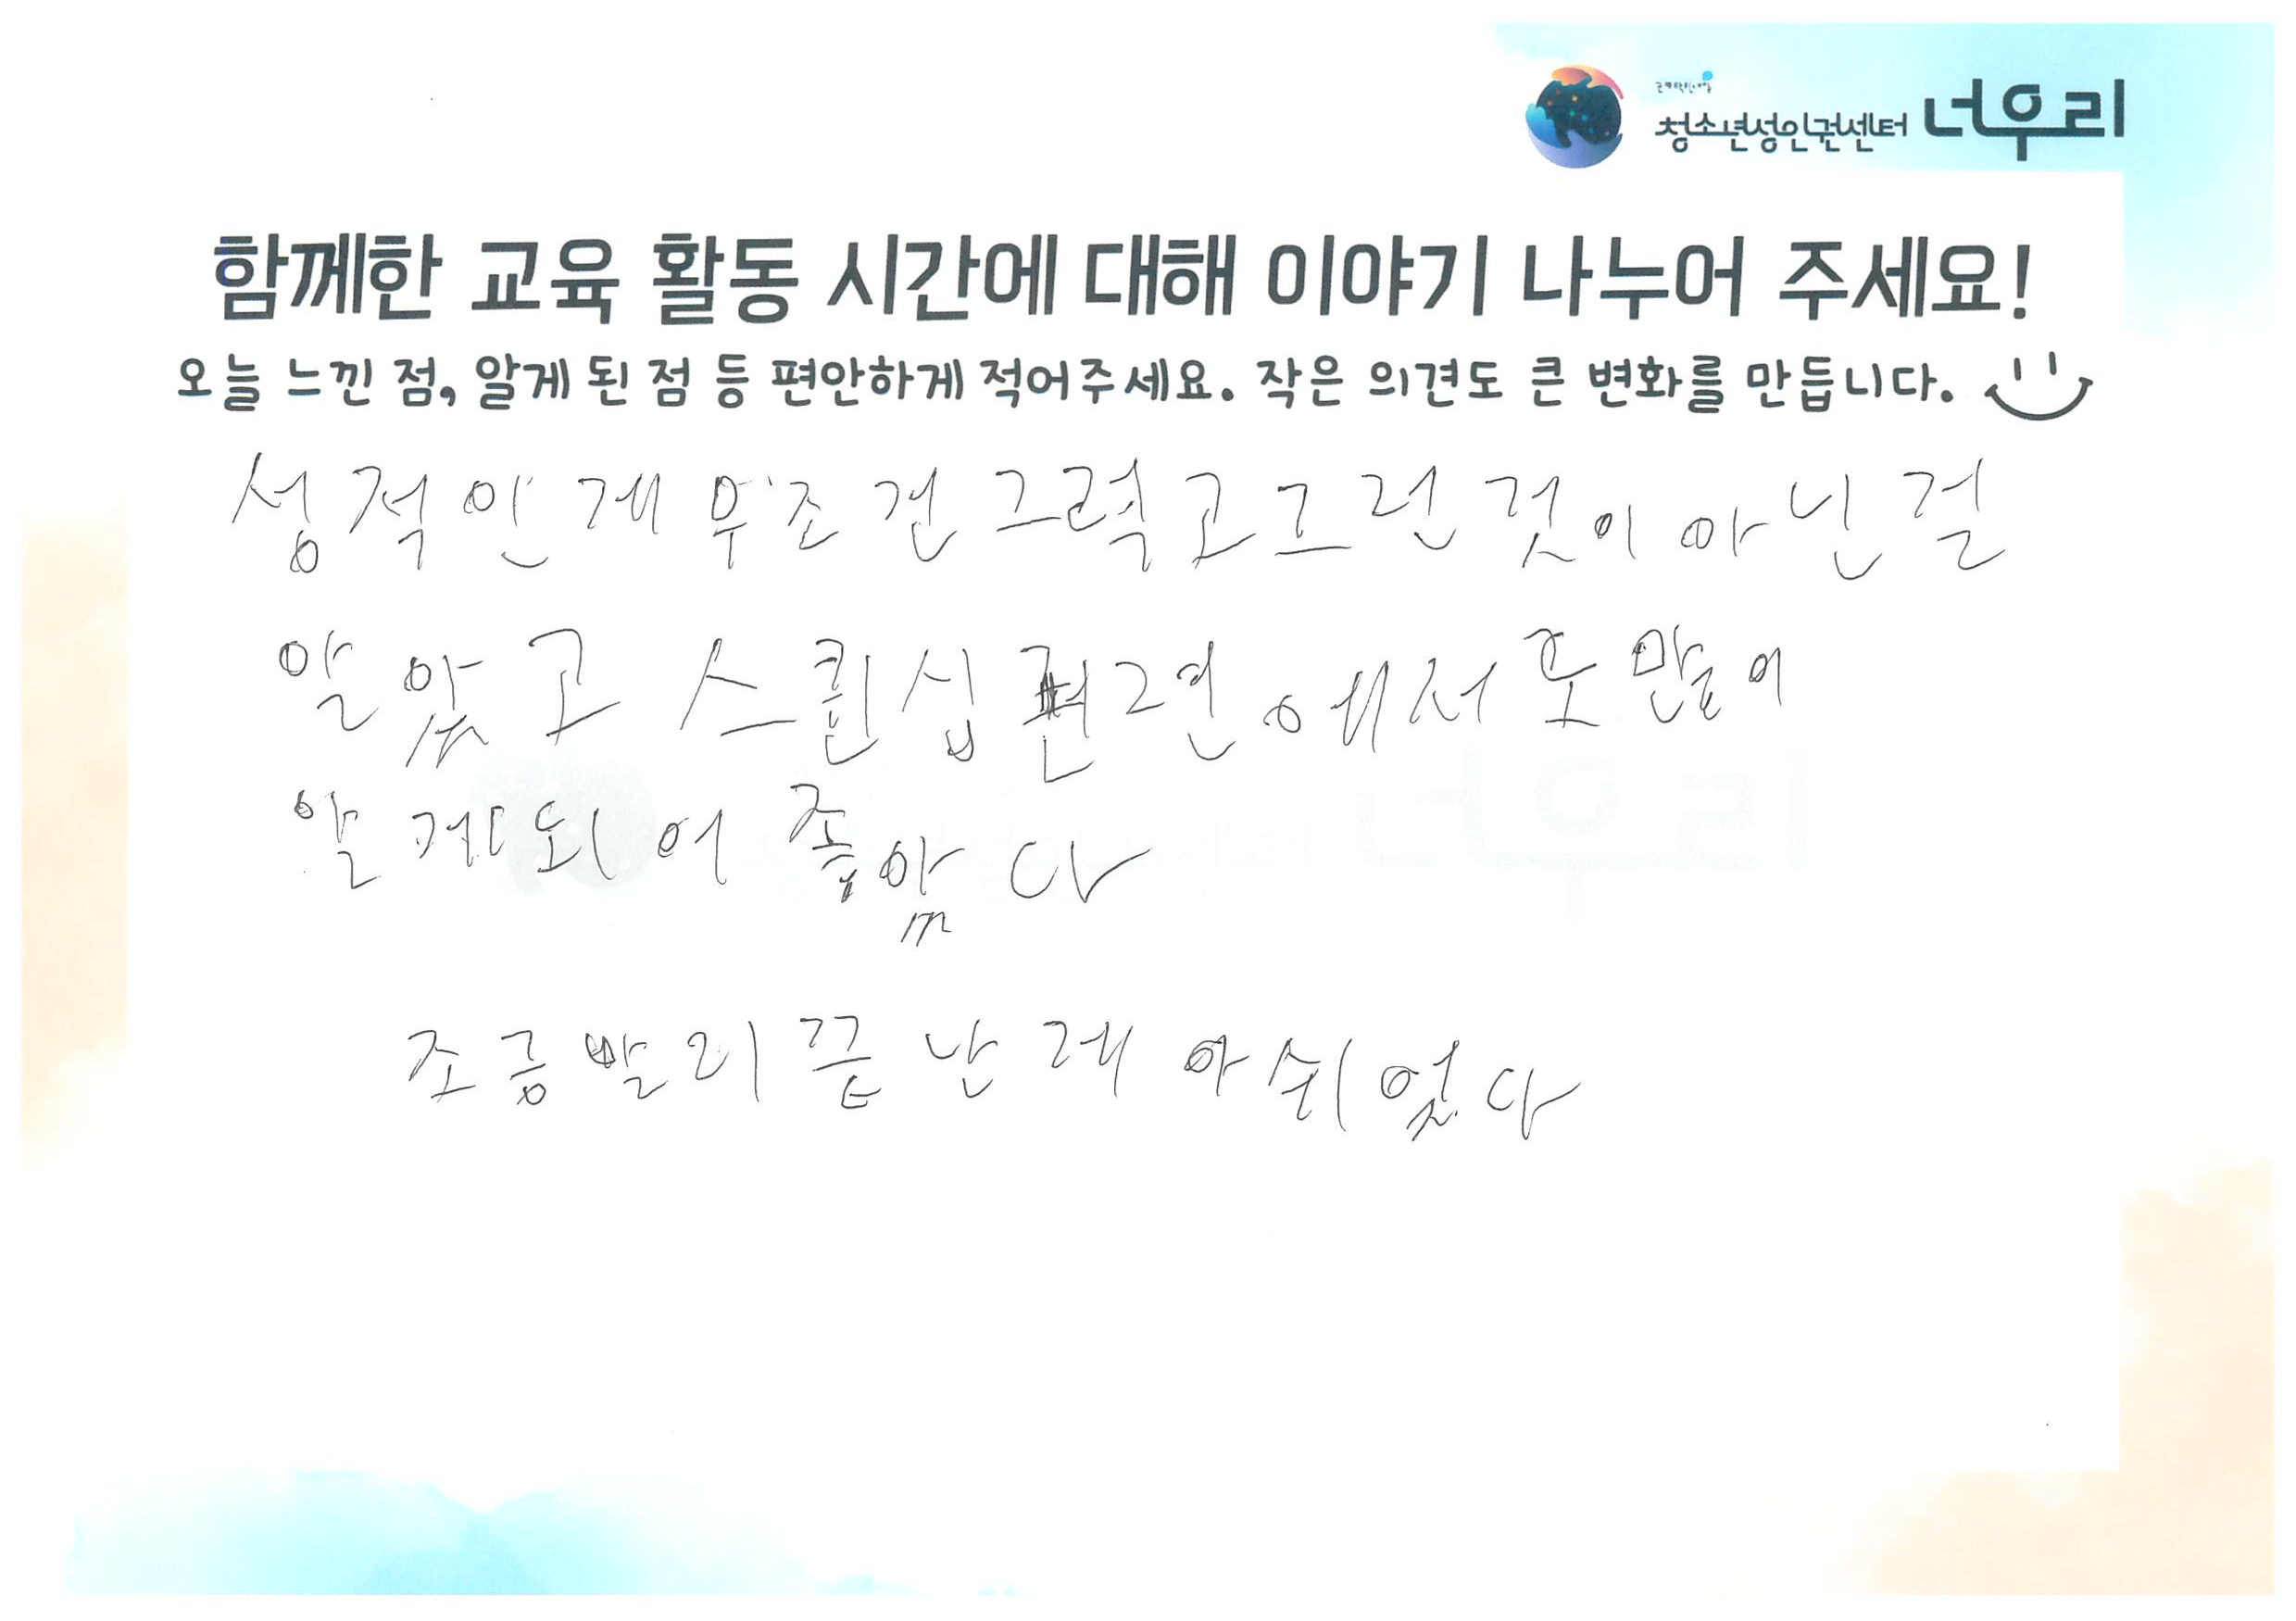 청소년성인권센터 너우리
함께한 교육 활동 시간에 대해 이야기 나누어 주세요!
오늘 느낀 점, 알게 된 점 등 편안하게 적어주세요. 작은 의견도 큰 변화를 만듭니다.
성적인게 무조건 그렇고 그런 것이 아닌 걸
알았고 스킨십 관련에서도 많이
알게되어 좋았다
조금 빨리 끝난게 아쉬웠다